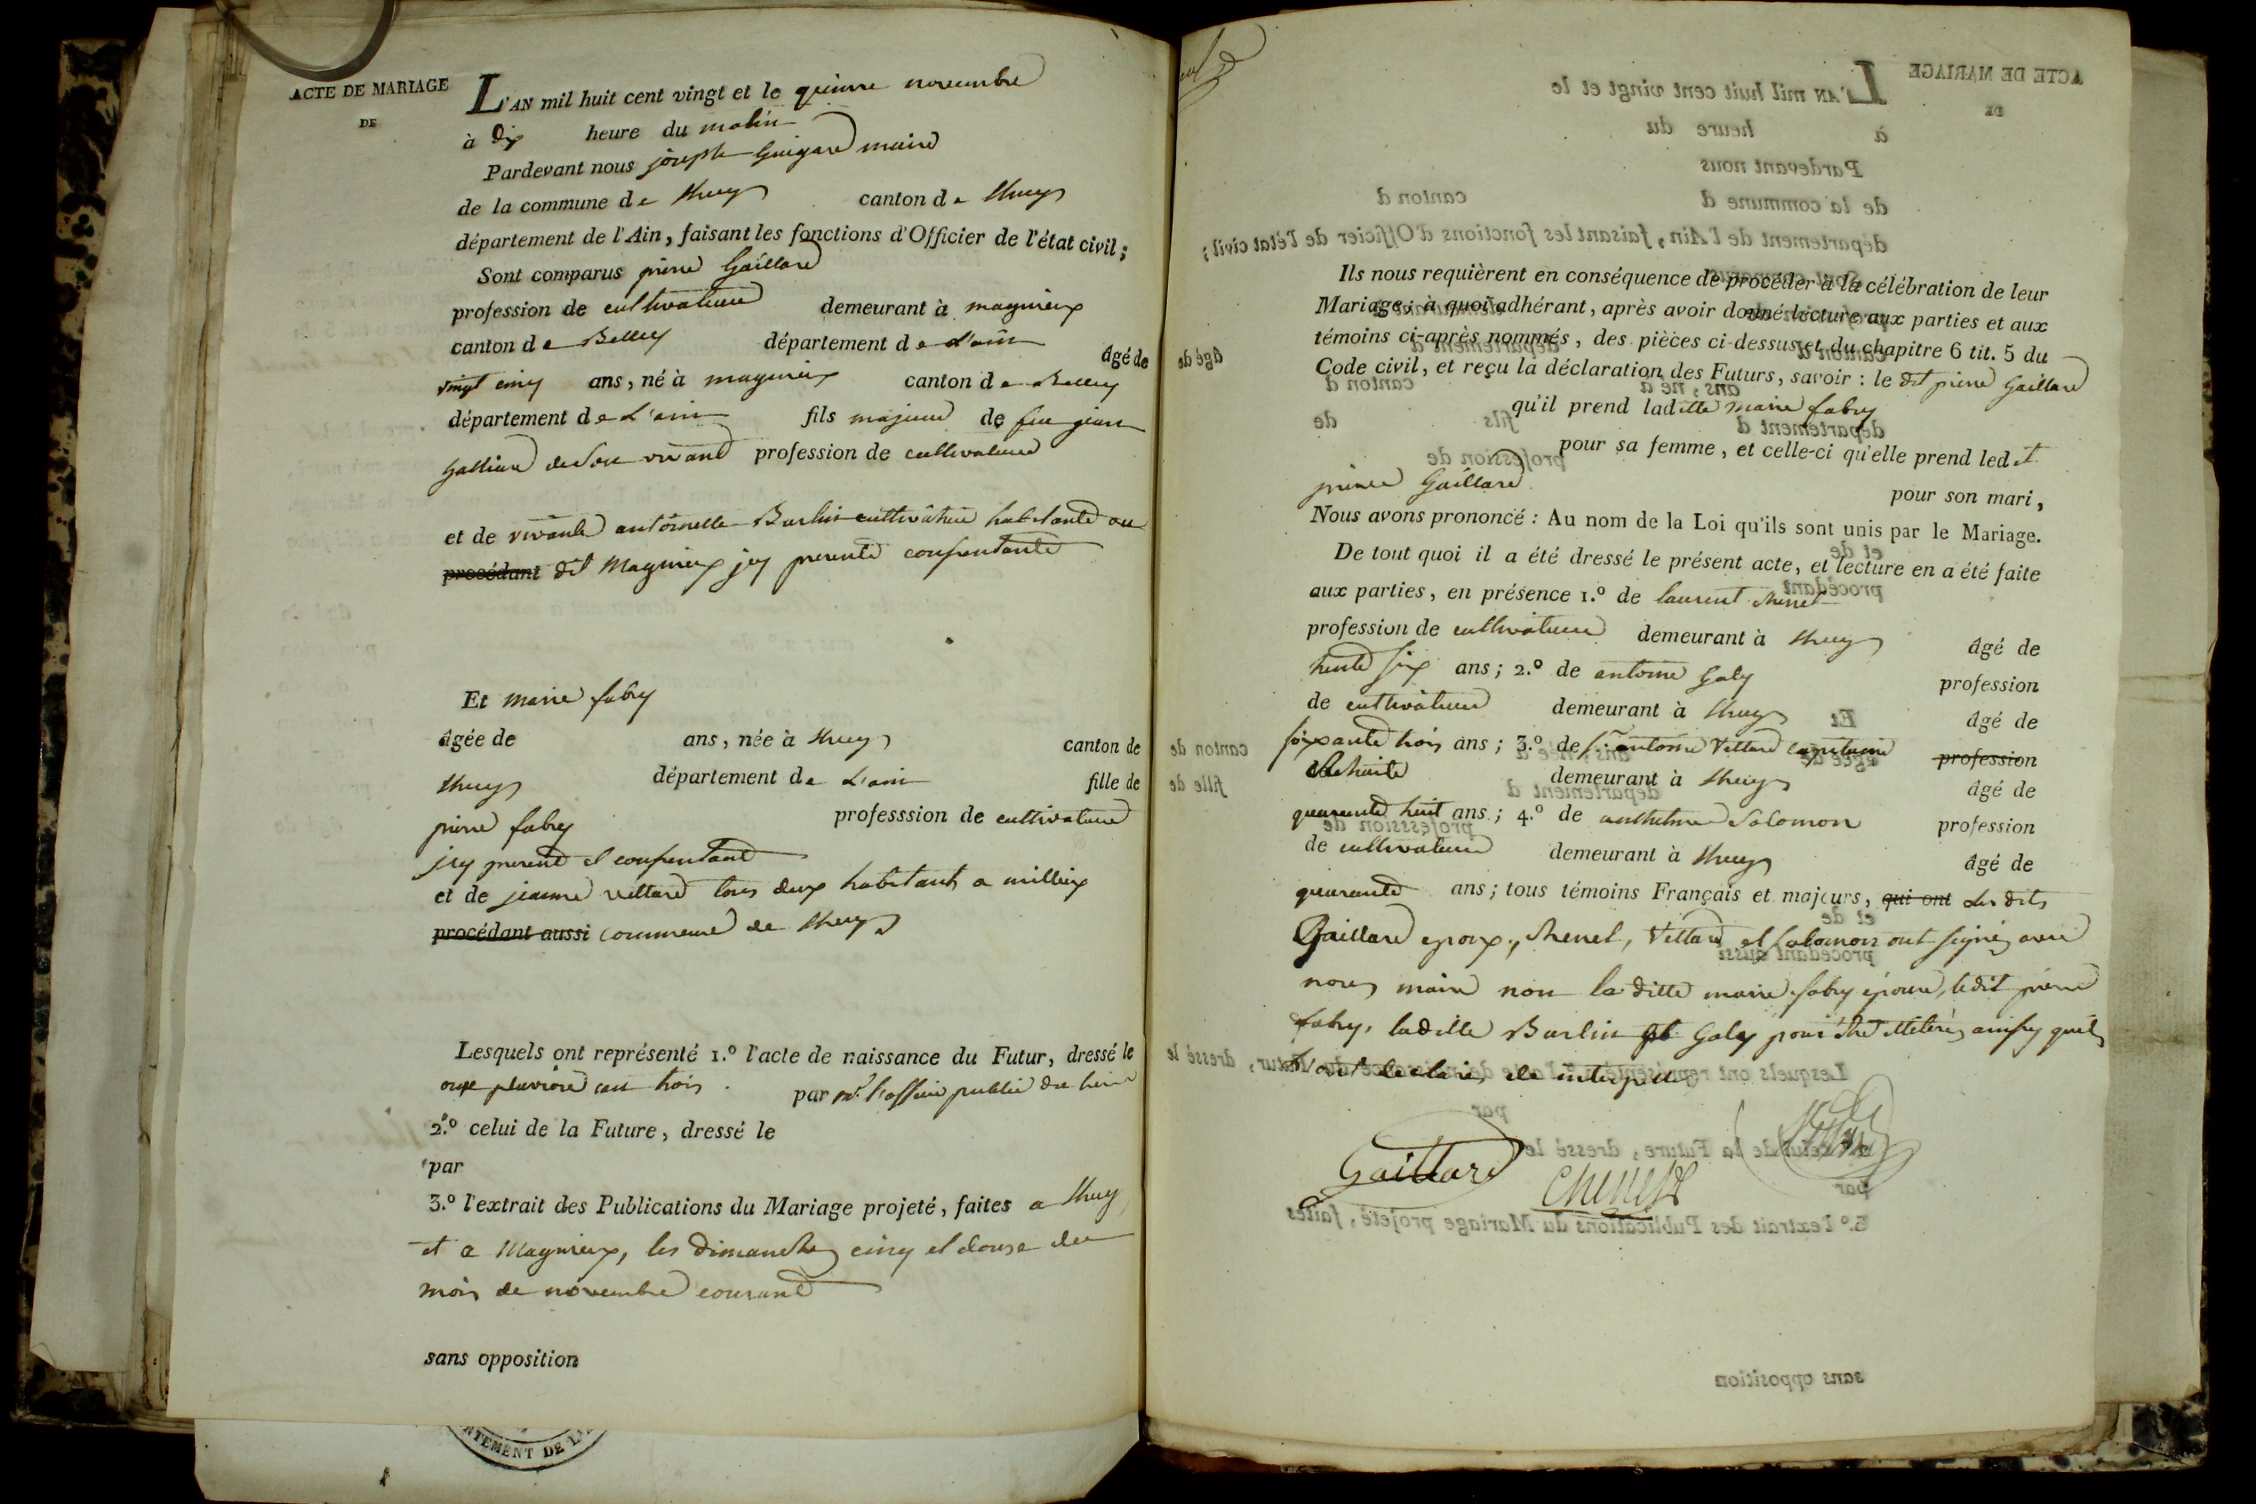 ACTE DE MARIAGE
DE
L'AN mil huit cent vingt et le quinze novembre
à dix heure du matin
Pardevant nous joseph Guigard maire
de la commune de thuey canton de thuey
département de l'Ain, faisant les fonctions d'Officier de l'état civil;
Sont comparus pierre Gaillard
profession de cultivateur demeurant à magnieux
canton de Belley département de l'ain âgé de
vingt cinq ans, né à magnieux canton de Belley
département de L'ain fils majeur de feu jean
Galliard de son vivant profession de cultivateur
et de vivante antoinette Burlin cultivatrice habitante au
procédant dit Magnieux jcy presente consentante
Et marie fabry
âgée de ans, née à thuey canton de
thuey département de L'ain fille de
pierre fabry professsion de cultivateur
jcy present et consentant
et de jeanne vettard tous deux habitants a millieux
procédant aussi commune de thuey
Lesquels ont représenté 1.º l'acte de naissance du Futur, dressé le
onze pluviose an trois. par mr. l'officier public du lieu
2.º celui de la Future, dressé le
par
3.º l'extrait des Publications du Mariage projeté, faites a thuey
et a Magnieux, les dimanches cinq et douze du
mois de novembre courant
sans opposition
NTEMENT DE L'A
Ils nous requièrent en conséquence de procéder à la célébration de leur
Mariage; à quoi adhérant, après avoir donné lecture aux parties et aux
témoins ci-après nommés, des pièces ci-dessus et du chapitre 6 tit. 5 du
Code civil, et reçu la déclaration des Futurs, savoir : le dit pierre Gaillard
qu'il prend laditte marie fabry
pour sa femme, et celle-ci qu'elle prend ledit
pierre Gaillard pour son mari,
Nous avons prononcé : Au nom de la Loi qu'ils sont unis par le Mariage.
De tout quoi il a été dressé le présent acte, et lecture en a été faite
aux parties, en présence 1.º de laurent chenet
profession de cultivateur demeurant à thuey âgé de
trente six ans; 2.º de antoine Galy profession
de cultivateur demeurant à thuey âgé de
soixante trois ans; 3.º de sr. antoine Vettard capitaine profession
en retraite demeurant à thuey âgé de
quarante huit ans; 4.º de anthelme Solomon profession
de cultivateur demeurant à thuey âgé de
quarante ans; tous témoins Français et majeurs, qui ont Les dits
Gaillard epoux, chenet, Vettard et solomon ont signé avec
nous maire non la ditte marie fabry épouse, le dit pierre
fabry, laditte Burlin et Galy pour être illeterés ainsy qu'ils
l'ont declarés de interpellés
Gaillard
Chenet